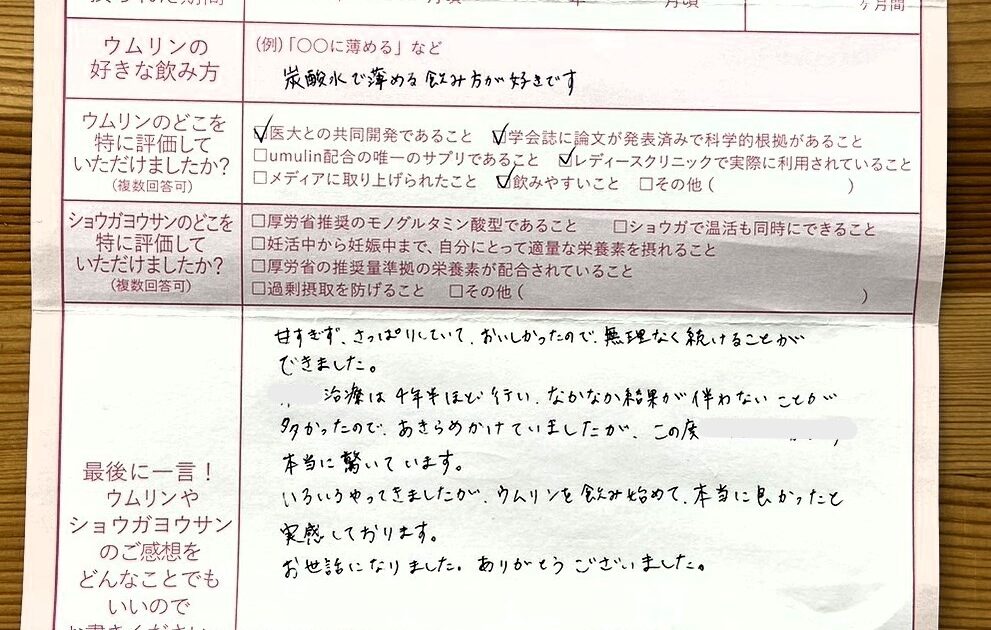 月頃
年
月頃
ヶ月間
ウムリンの
好きな飲み方
(例)「○○に薄める」など
炭酸水で薄める飲み方が好きです
ウムリンのどこを
特に評価して
いただけましたか?
(複数回答可)
☑医大との共同開発であること ☑学会誌に論文が発表済みで科学的根拠があること
□umulin配合の唯一のサプリであること ☑レディースクリニックで実際に利用されていること
□メディアに取り上げられたこと ☑飲みやすいこと □その他( )
ショウガヨウサンのどこを
特に評価して
いただけましたか?
(複数回答可)
□厚労省推奨のモノグルタミン酸型であること □ショウガで温活も同時にできること
□妊活中から妊娠中まで、自分にとって適量な栄養素を摂れること
□厚労省の推奨量準拠の栄養素が配合されていること
□過剰摂取を防げること □その他( )
最後に一言!
ウムリンや
ショウガヨウサン
のご感想を
どんなことでも
いいので
甘すぎず、さっぱりしていて、おいしかったので、無理なく続けることが
できました。
治療は4年半ほど行い、なかなか結果が伴わないことが
多かったので、あきらめかけていましたが、この度
本当に驚いています。
いろいろやってきましたが、ウムリンを飲み始めて、本当に良かったと
実感しております。
お世話になりました。ありがとうございました。